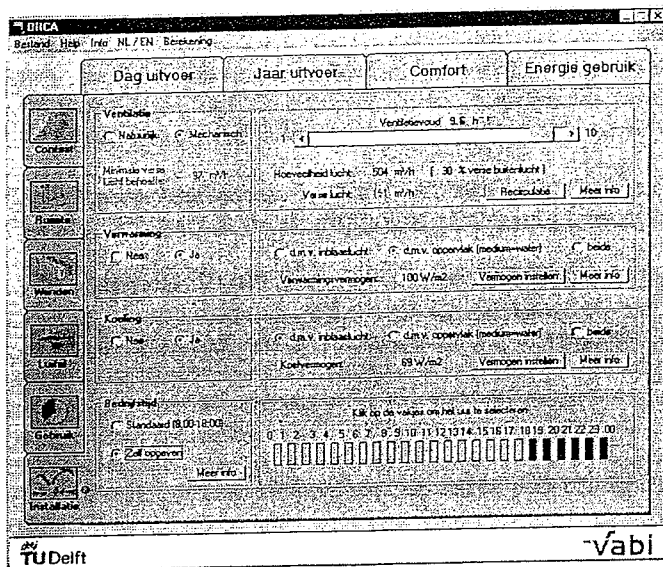 ORCA
Bestand Help Info NL / EN Berekening
Dag uitvoer Jaar uitvoer Comfort Energie gebruik
Context
Ruimte
Wanden
Luifel
Gebruik
Installatie
Ventilatie
Natuurlijk Mechanisch
Minimale verse lucht behoefte 97 m³/h
Ventilatievoud 9.6 h-1
1 10
Hoeveelheid lucht: 504 m³/h [ 30 % verse buitenlucht ]
Verse lucht: 151 m³/h Recirculatie Meer info
Verwarming
Nee Ja
d.m.v. inblaaslucht d.m.v. oppervlak (medium=water) beide
Verwarmingsvermogen: 100 W/m2 Vermogen instellen Meer info
Koeling
Nee Ja
d.m.v. inblaaslucht d.m.v. oppervlak (medium=water) beide
Koelvermogen: 69 W/m2 Vermogen instellen Meer info
Bedrijfstijd
Standaard (8:00-18:00)
Zelf opgeven
Meer info
Klik op de vakjes om het uur te selecteren
0 1 2 3 4 5 6 7 8 9 10 11 12 13 14 15 16 17 18 19 20 21 22 23 00
TU Delft
Vabi